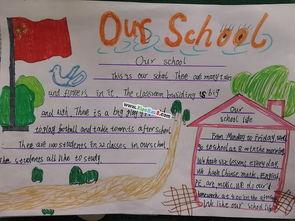 Our School
Our school
This is our school There are many trees
and flowers in it. The classroom building is big
and with There is a big play
to play football and take sports after school
There are 1000 students in 22 classes in our school.
The students all like to study.
Our
school life
From Monday to Friday, we
go to school at 8 in the morning
We have six lessons every day
We have Chinese math, English,
P.E, art, music. We do our
homework at 4:00 in the afternoon
We like our school life